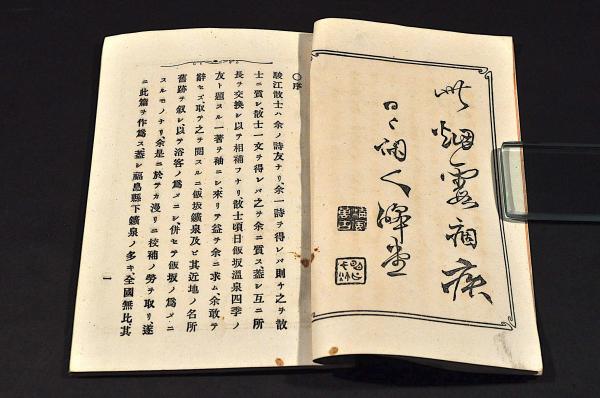 此烟霞痼疾
○序
駿江散士ハ余ノ詩友ナリ、余一詩ヲ得レバ則チ之ヲ散
士ニ質シ散士一文ヲ得レバ之ヲ余ニ質ス蓋シ互ニ所
長ヲ交換シ以テ相補フナリ散士頃日飯坂溫泉四季ノ
友ト題スル一著ヲ袖ニシ來リテ益ヲ余ニ求ム、余敢テ
辭セズ、取テ之ヲ閲スルニ飯坂鑛泉及ビ其近地ノ名所
舊跡ヲ叙シ以テ浴客ノ爲メニシ、併セテ飯坂ノ爲メニ
スルモノナリ、余是ニ於テカ漫リニ校補ノ勞ヲ取リ、遂
ニ此篇ヲ作爲ス蓋シ福島縣下鑛泉ノ多キ、全國無比、其
一